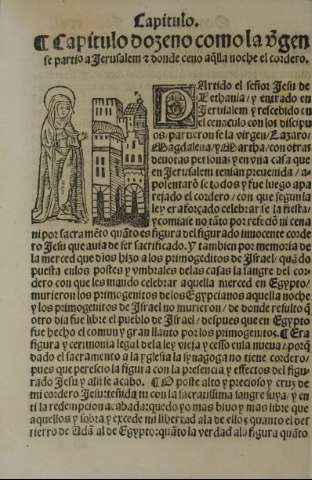 Capitulo.
¶ Capitulo dozeno como la v̄gen
se partio a Jerusalem ⁊ donde ceno aq̃lla noche el cordero.
PArtido el señor Jesu de
Bethania/ y entrado en
Jerusalem y rescebido en
el cenaculo con los discipu
os/ partieron se la virgen/ Lazaro/
Magdalena/ y Martha/ con otras
deuotas personas y en vna casa que
en Jerusalem tenian preuenida/ a
posentarõ se todos y fue luego apa
rejado el cordero/ con que segun la
ley era forçado celebrar se la fiesta/
y comiate no tãto por refeciõ ni cena
ni por sacramẽto quãto es figura del figurado innocente corde
ro Jesu que auia de ser sacrificado. Y tambien por memoria de
la merced que dios hizo a los primogenitos de Israel/ quãdo
puesta en los postes y vmbrales de las casas la sangre del cor
dero con que les mando celebrar aquella merced en Egypto/
murieron los primogenitos de los Egypcianos aquella noche
y los primogenitos de Israel no murieron/ de donde resulto q̃
otro dia fue libre el pueblo de Israel/ despues que en Egypto
fue hecho el comun y gran llanto por los primogenitos. ¶ Era
figura y cerimonia legal de la ley vieja y cesso en la nueua/ porq̃
dado el sacramento a la yglesia la synagoga no tiene cordero/
pues que perescio la figura con la presencia y effectos del figu
rado Jesu y alli se acabo. ¶ O poste alto y precioso y cruz de
mi cordero Jesu: teñida con la sacratissima sangre suya/ y en
ti la redempcion acabada: quedo yo mas biuo y mas libre que
aquellos y sobra y excede mi libertad a la de ellos quanto el des
tierro de Adã al de Egypto: quãto la verdad a la figura quãto